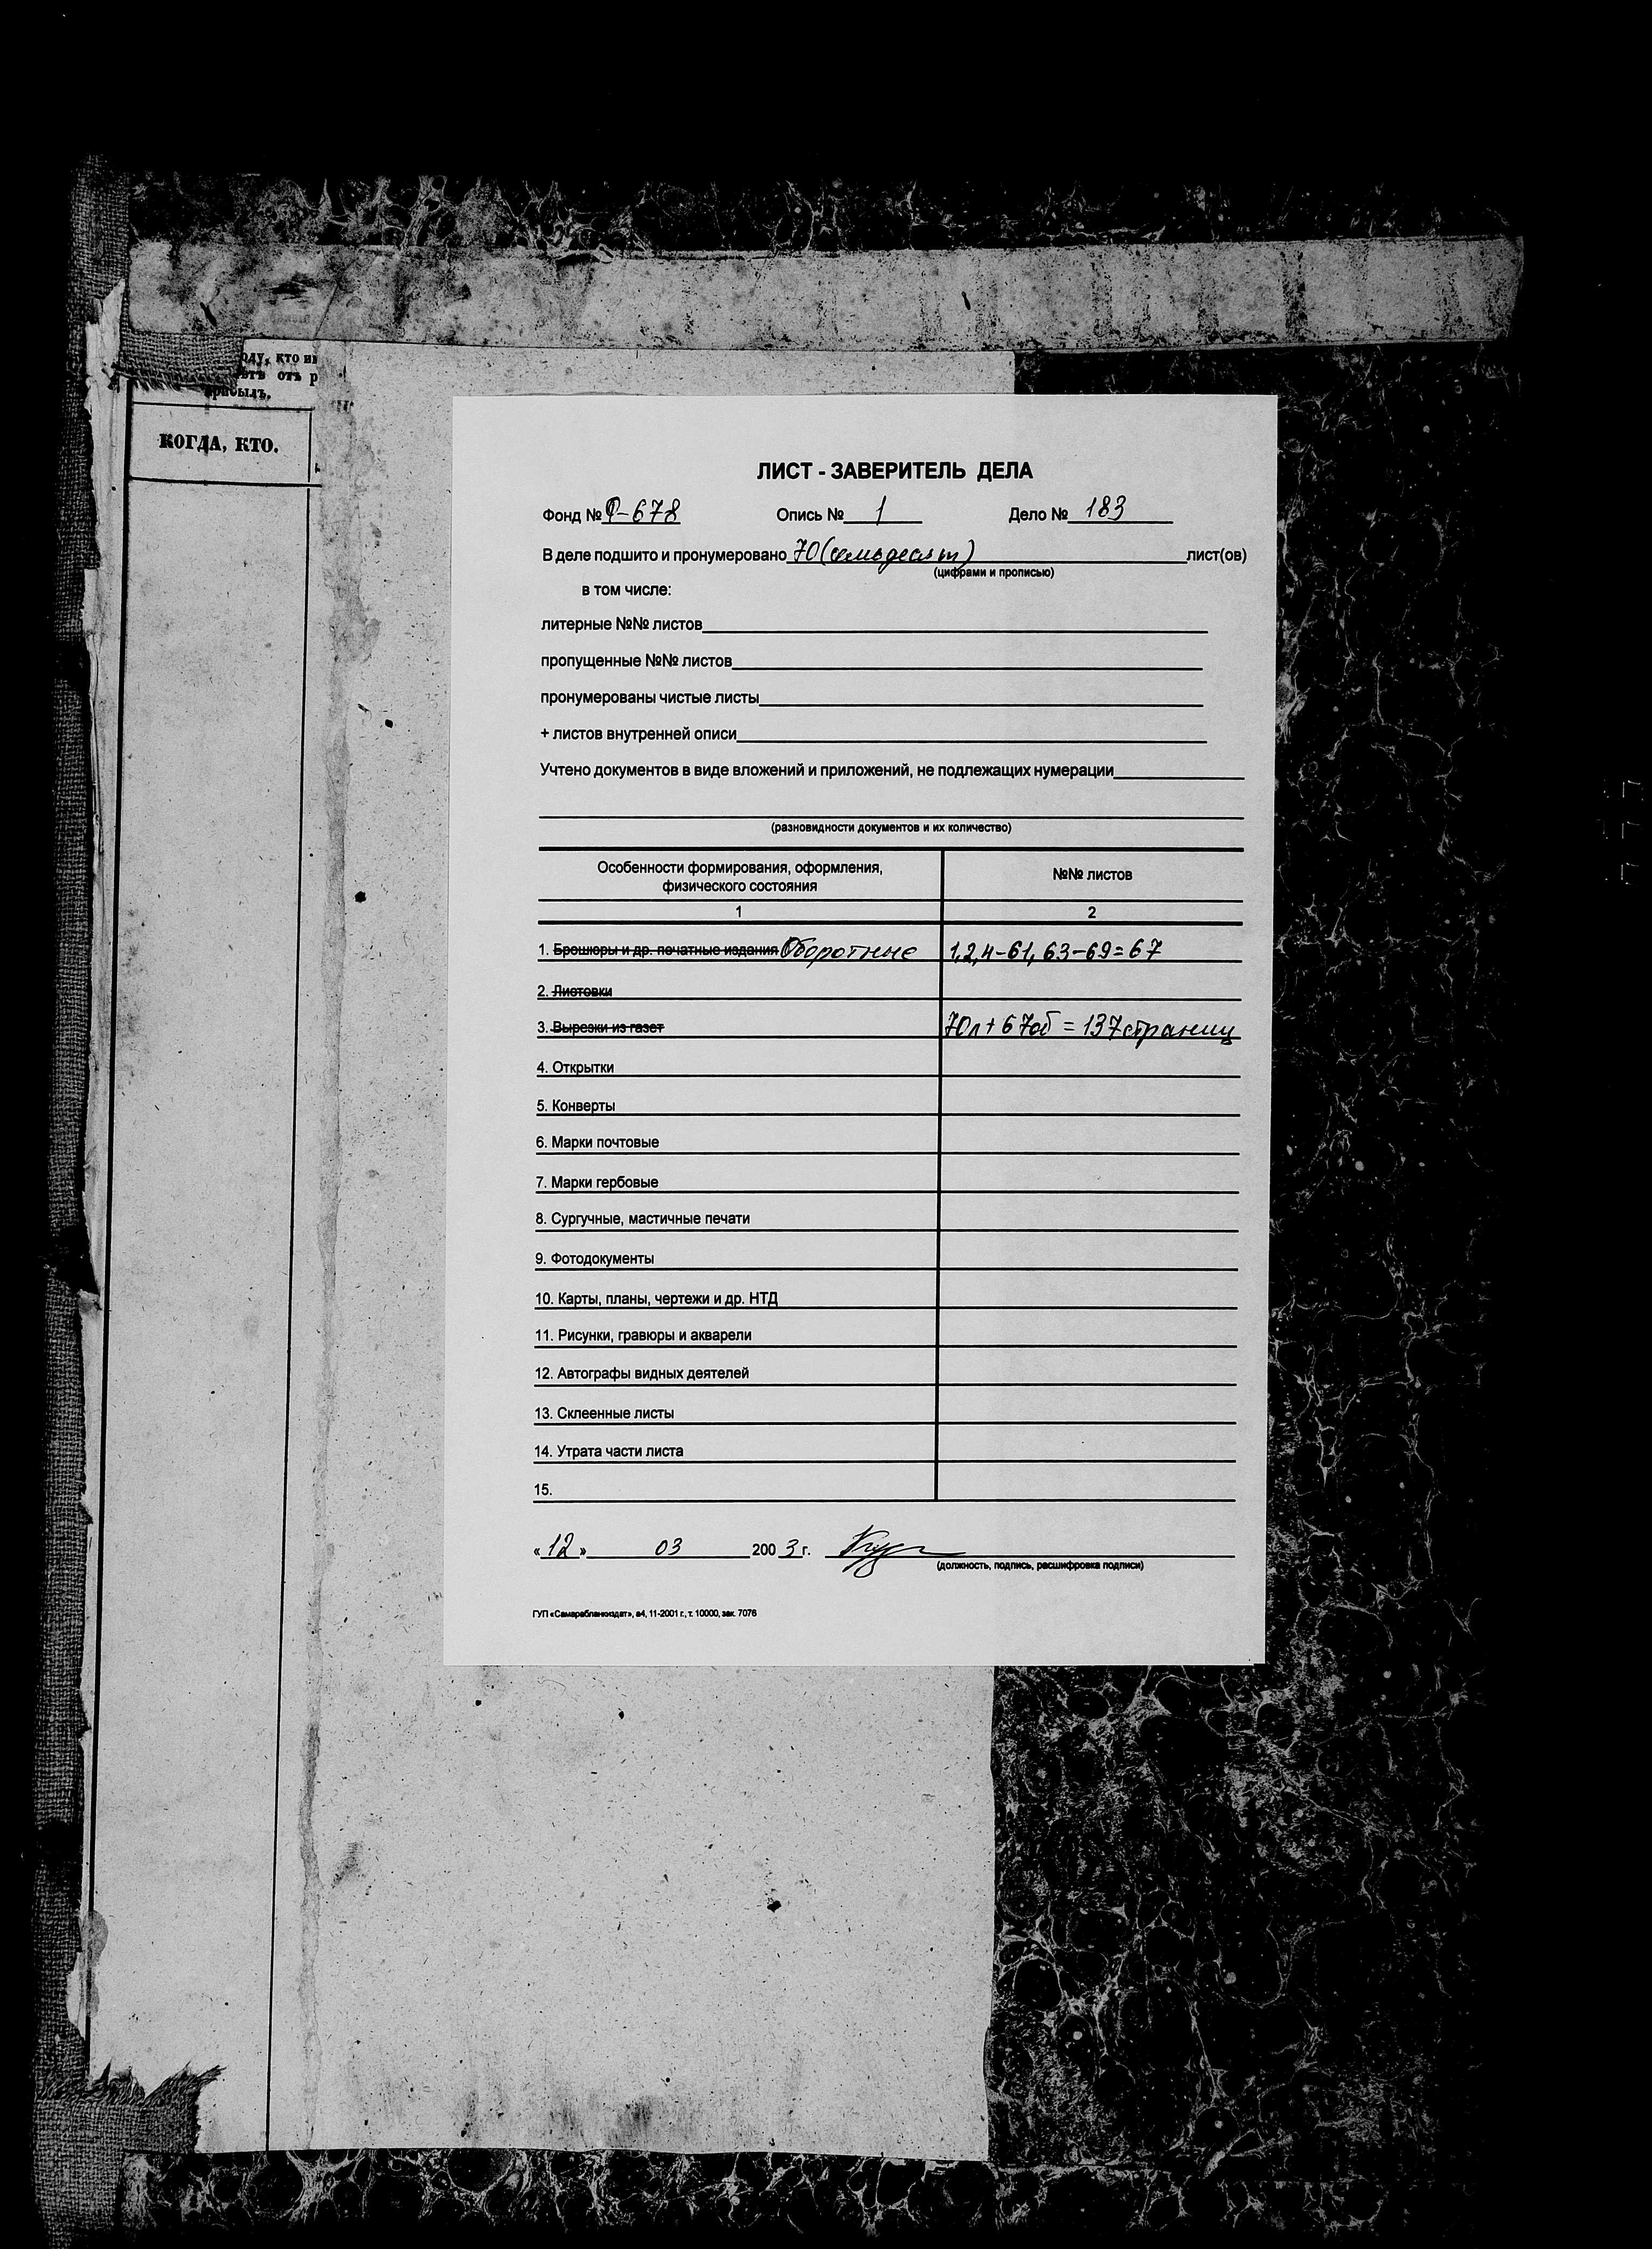 оду, кто им
ѣтъ отъ р
прибылъ.
КОГДА, КТО.
ЛИСТ - ЗАВЕРИТЕЛЬ ДЕЛА
Фонд № Ф-678 Опись № 1 Дело № 183
В деле подшито и пронумеровано 70 (семьдесят) лист(ов)
(цифрами и прописью)
в том числе:
литерные №№ листов
пропущенные №№ листов
пронумерованы чистые листы
+ листов внутренней описи
Учтено документов в виде вложений и приложений, не подлежащих нумерации
(разновидности документов и их количество)
Особенности формирования, оформления, физического состояния №№ листов
1 2
1. Брошюры и др. печатные издания Оборотные 1,2,4-61, 63-69=67
2. Листовки
3. Вырезки из газет 70л+67об = 137страниц
4. Открытки
5. Конверты
6. Марки почтовые
7. Марки гербовые
8. Сургучные, мастичные печати
9. Фотодокументы
10. Карты, планы, чертежи и др. НТД
11. Рисунки, гравюры и акварели
12. Автографы видных деятелей
13. Склеенные листы
14. Утрата части листа
15.
«12» 03 2003 г.
(должность, подпись, расшифровка подписи)
ГУП «Самарабланкиздат», а4, 11-2001 г., т. 10000, зак. 7076